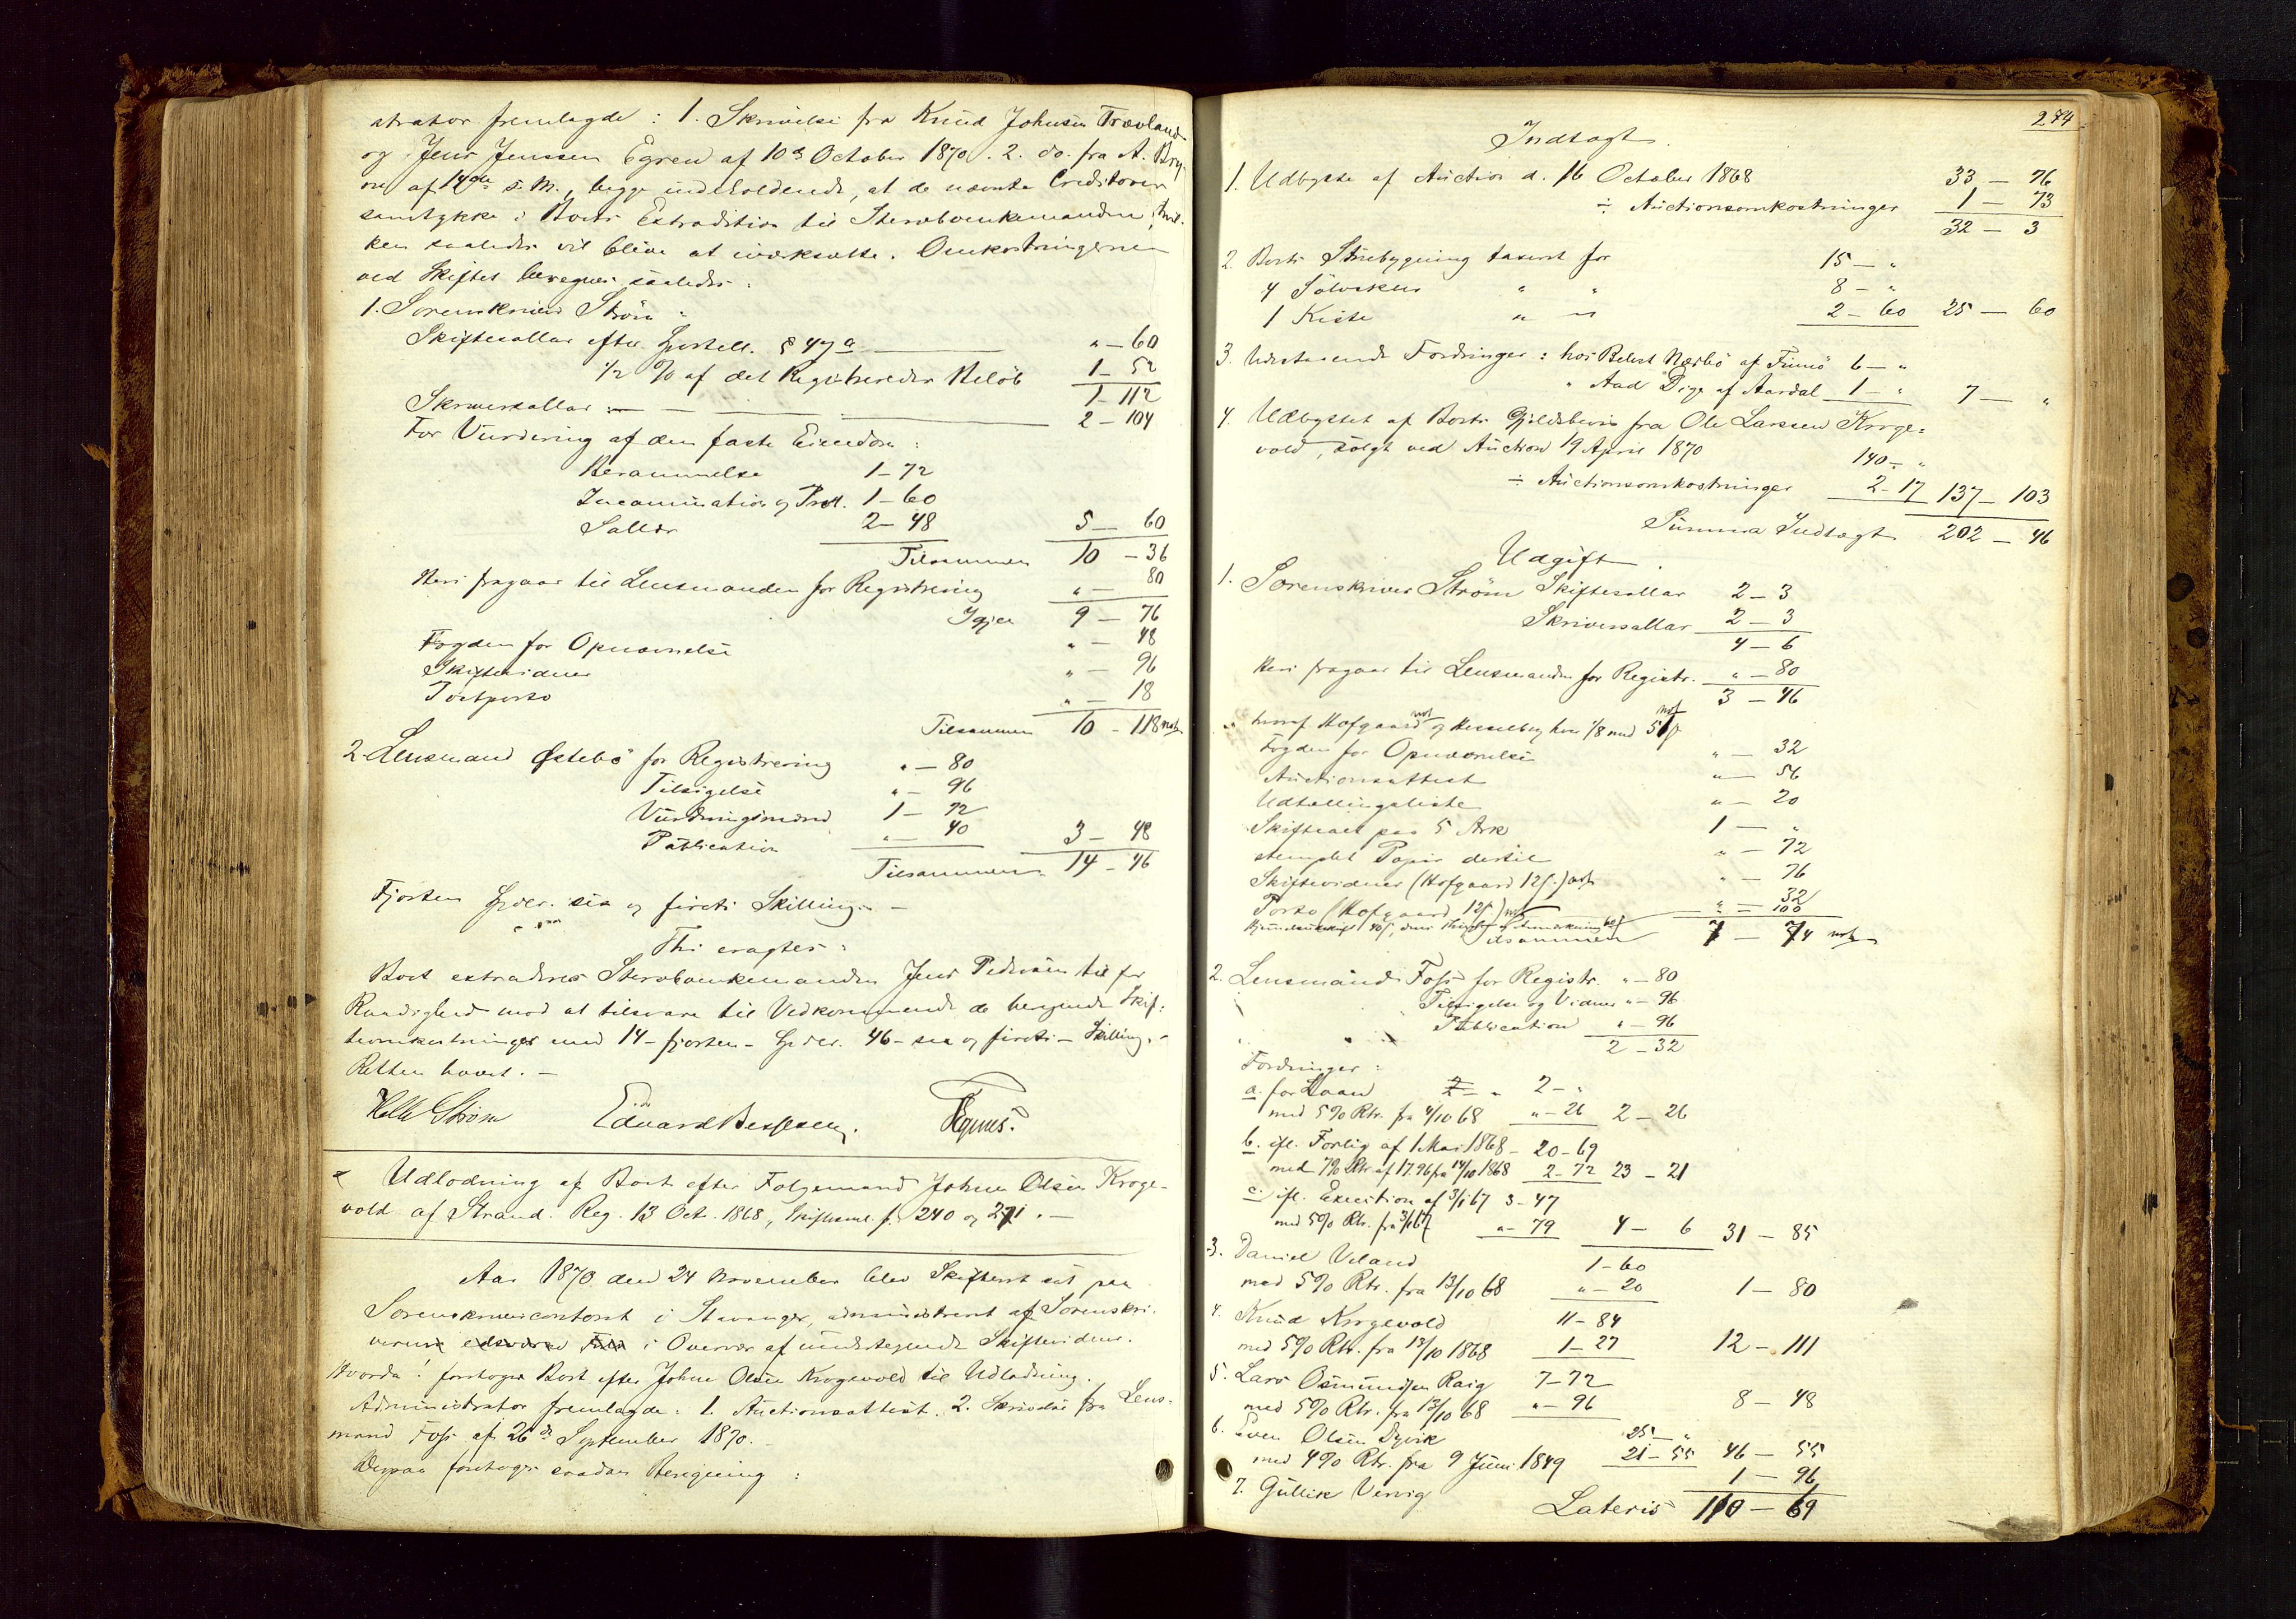 strator fremlagde: 1. Skrivelse fra Knud Johnsen Trævland
og Jens Jenssen Egren af 10de October 1870. 2. do. fra A. Bry-
ne af 14de s. M., begge indeholdende, at de nævnte Creditorer
samtykke i Boets Extradition til Stervboenkemanden, hvil-
ken saaledes vil blive at iværksætte. Omkostningerne
ved Skiftet beregnes saaledes:
1. Sorenskriver Strøm:
Skiftesallar efter Sportell. § 47 a " – 60
1/2 % af det Registrerede Beløb 1 – 52
1 – 112
Skriversallar: 2 – 104
For Vurdering af den faste Eiendom:
Berammelse 1 – 72
Incamination og Prot. 1 – 60
Sallær 2 – 48 5 – 60
Tilsammen 10 – 36
Heri fragaar til Lensmanden for Registrering " – 80
Igjen 9 – 76
Fogden for Opnævnelse " – 48
Skiftevidner " – 96
Postporto " – 18
Tilsammen 10 – 118
2. Lensmand Østebö for Registrering " – 80
Tilsigelse " – 96
Vurderingsmænd 1 – 72
Publication " – 40 3 – 48
Tilsammen 14 – 46
Fjorten Spdlr. sex og fireti Skilling. –
Thi eragtes:
Boet extraderes Stervboenkemanden Jens Pedersen til fri
Raadighed mod at tilsvare til Vedkommende de beregnede Skif-
teomkostninger med 14 – fjorten – Spdlr. 46 – sex og fireti – Skilling. –
Retten hævet. –
Helle Strøm Eduard Bessesen. Tegnes.
x Udlodning af Boet efter Folgemand Johne Olsen Kroge-
vold af Strand. Reg. 13 Oct. 1868, Skiftesml. f. 240 og 271. –
Aar 1870 den 24 November blev Skifteret sat paa
Sorenskrivercontoret i Stavanger, administreret af Sorenskri-
veren i Overvær af undertegnede Skiftevidner.
Hvorda: foretoges Boet efter Johne Olsen Krogevold til Udlodning.
Administrator fremlagde: 1. Auctionsattest. 2. Skrivelse fra Lens-
mand Foss af 26de September 1870. –
Derpaa foretoges saadan Beregning:
274
Indtægt.
1. Udbytte af Auction d. 16 October 1868 33 – 76
÷ Auctionsomkostninger 1 – 73
32 – 3
2. Boets Stuebygning taxeret for 15 – "
4 Sölvskeer " " 8 – "
1 Kiste " " 2 – 60 25 – 60
3. Udestaaende Fordringer: hos Berent Nærbö af Finnö 6 – "
" Aad Dige af Aardal 1 – " 7 – "
4. Udbyttet af Boets Gjeldsbevis fra Ole Larssen Kroge-
vold, solgt ved Auction 19 April 1870 140 – "
÷ Auctionsomkostninger 2 – 17 137 – 103
Summa Indtægt 202 – 46
Udgift.
1. Sorenskriver Strøm Skiftesallar 2 – 3
Skriversallar 2 – 3
4 – 6
Heri fragaar til Lensmanden for Registr. " – 80
3 – 46
hvoraf Hofgaard og Hesselberg hver 1/8 med
Fogden for Opnævnelse " – 32
Auctionsattest " – 56
Udtællingsliste " – 20
Skifteact paa 5 Ark 1 – "
stemplet Papir dertil " – 72
Skiftevidner (Hofgaard 12 s.) " – 76
Porto (Hofgaard 12 s) " – 32
" – 100
tilsammen 7 – 74
2. Lensmand Foss for Registr. " – 80
Tilsigelse og Vidner " – 96
Publication " – 96
2 – 32
Fordringer:
a. for Laan 2 – "
med 5% Rtr. fra 4/10 68 " – 26 2 – 26
b. ifl. Forlig af 1 Mai 1868 – 20 – 69
med 7% Rtr af 17.96 fra 14/10 1868 2 – 72 23 – 21
c. ifl. Execution af 3/1 67 3 – 47
med 5% Rtr. fra 3/1 67 " – 79 4 – 6 31 – 85
3. Daniel Veland 1 – 60
med 5% Rtr. fra 13/10 68 " – 20 1 – 80
4. Knud Krogevold 11 – 84
med 5% Rtr. fra 13/10 1868 1 – 27 12 – 111
5. Lars Osmundsen Raig 7 – 72
med 5% Rtr. fra 13/10 68 " – 96 8 – 48
6. Sven Olsen Dyvik 25 – "
med 4% Rtr. fra 9 Juni 1849 21 – 55 46 – 55
7. Gullik Vervig 1 – 96
Lateris 110 – 69